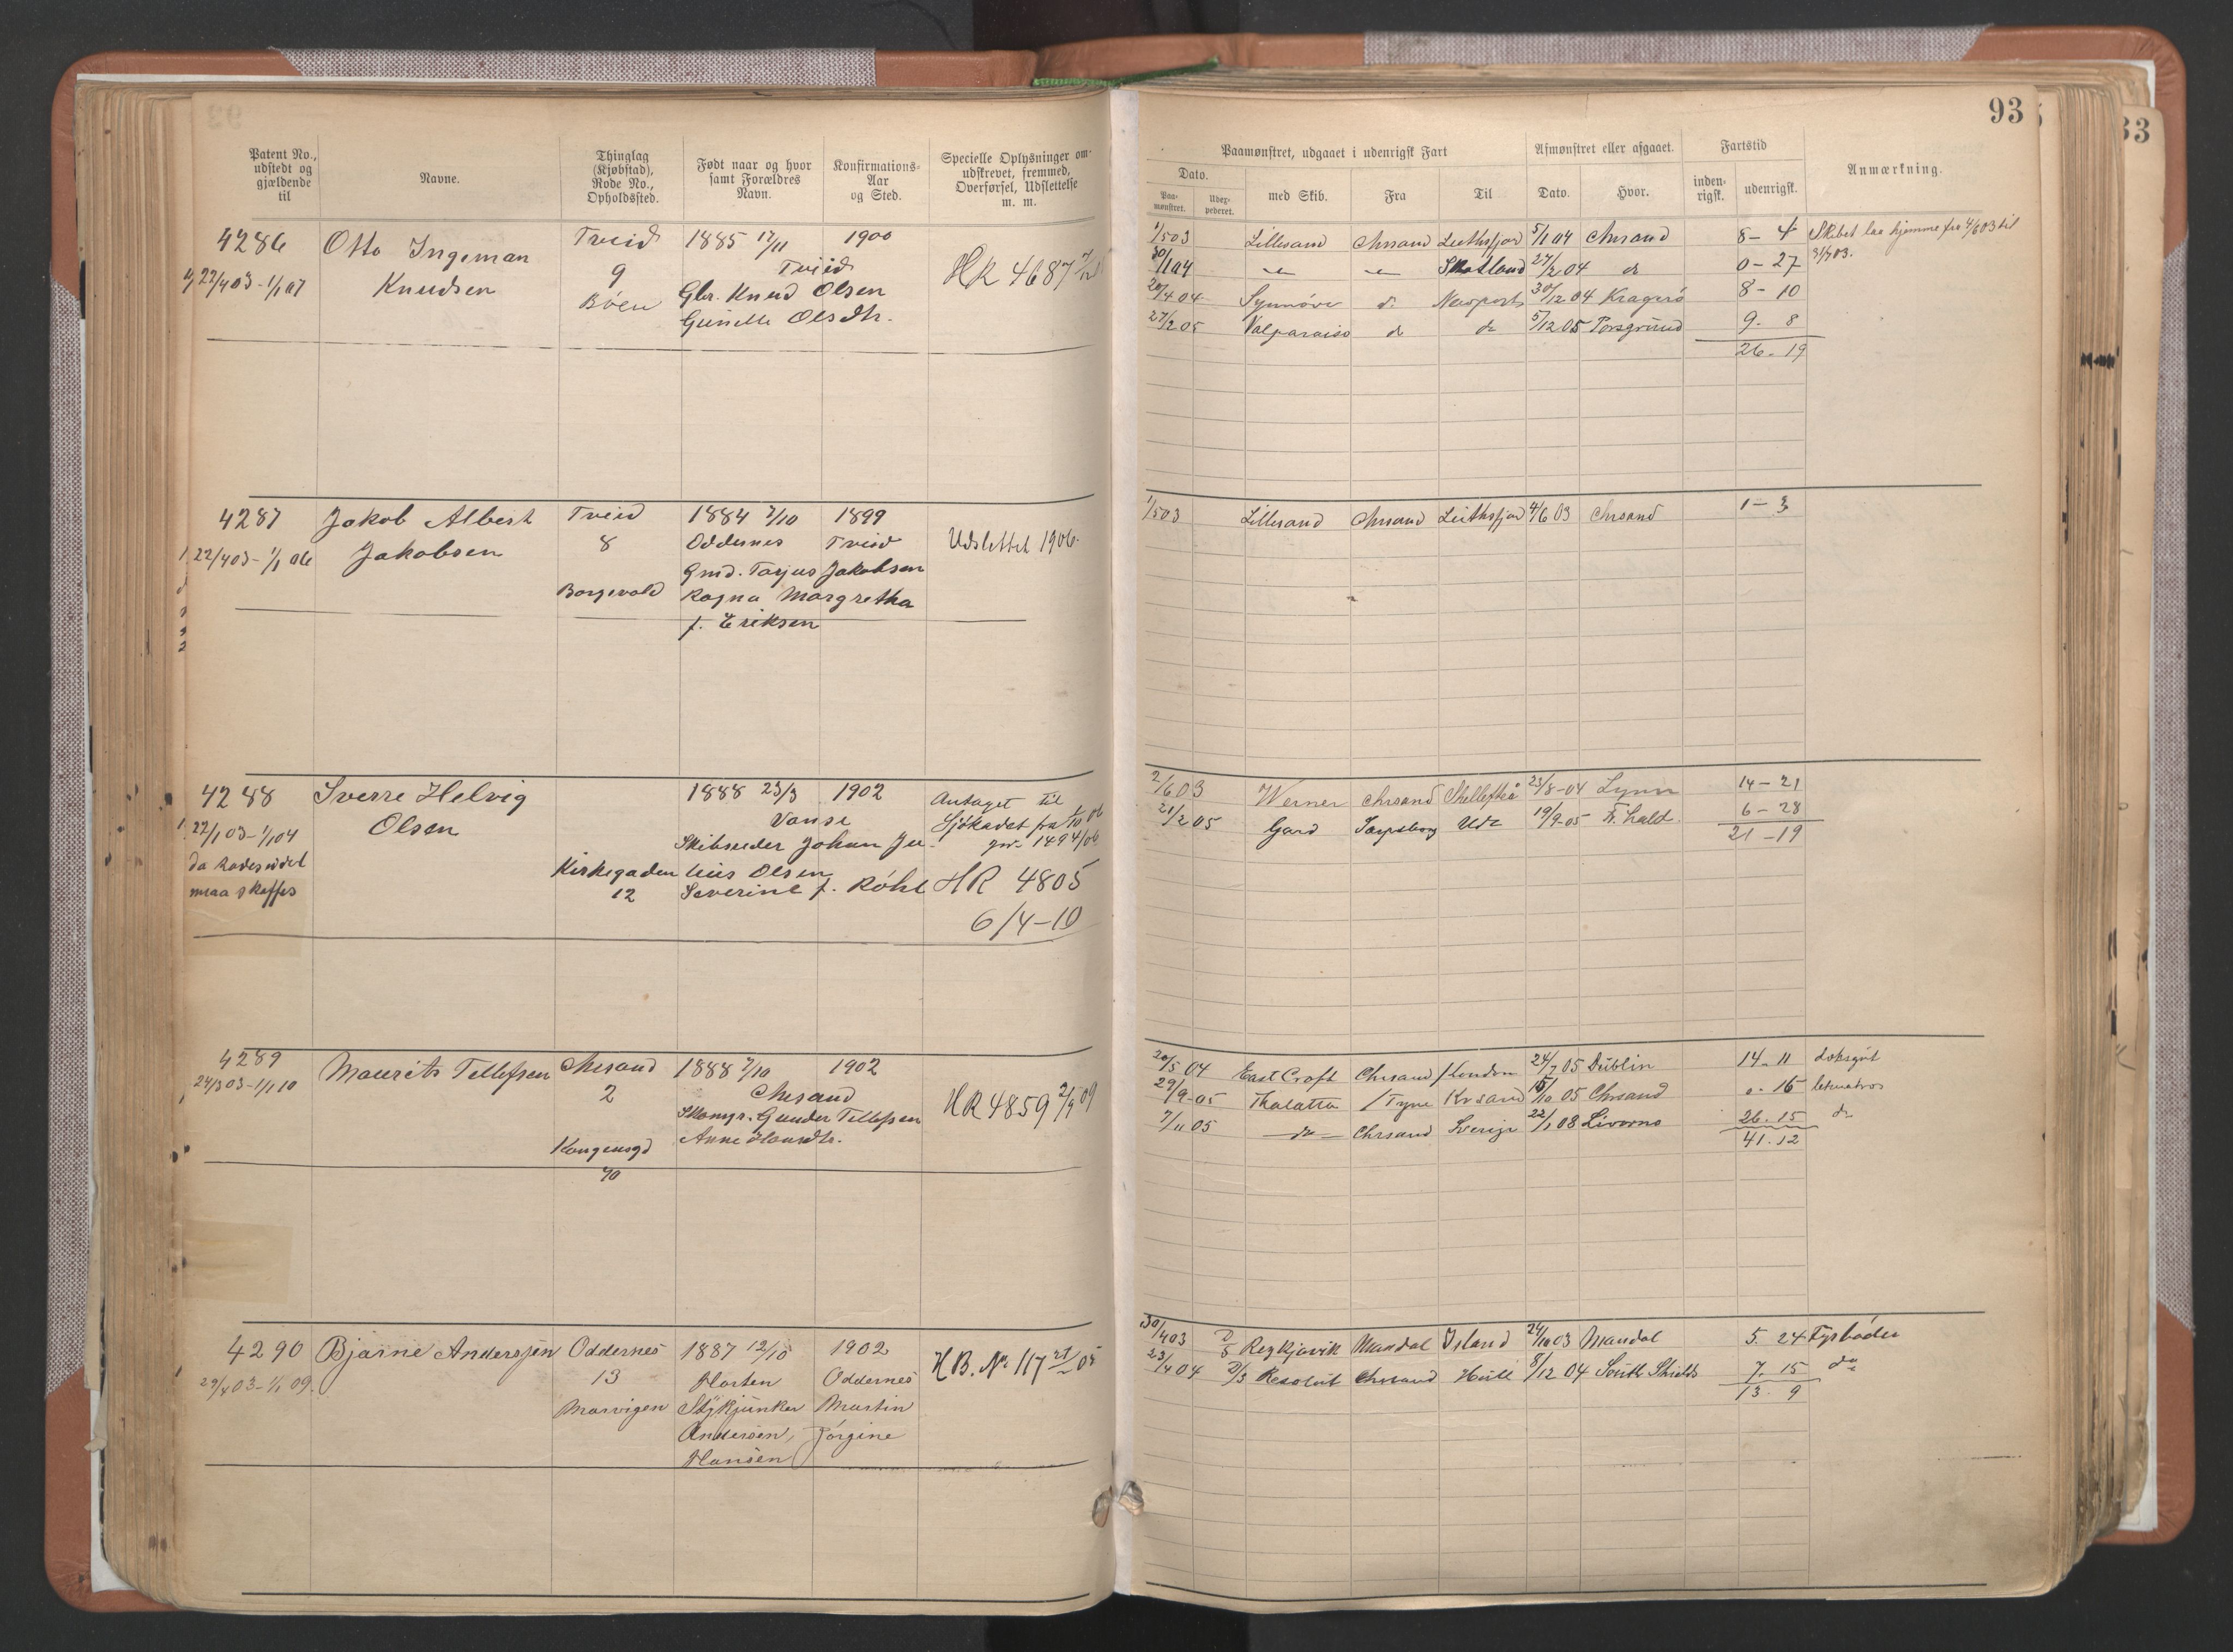 93
Patent No., udstedt og gjældende til
Navne.
Thinglag (Kjøbstad), Rode No., Opholdssted.
Født naar og hvor samt Forældres Navn.
Konfirmations-Aar og Sted.
Specielle Oplysninger om udskrevet, fremmed, Overførsel, Udslettelse m. m.
Paamønstret, udgaaet i udenrigsk Fart
Afmønstret eller afgaaet.
Fartstid
Anmærkning.
Dato.
Paa-mønstret.
med Skib.
Fra
Til
Dato.
Hvor.
inden-rigsk.
udenrigsk.
4286 Otto Ingeman Tveid 1885 17/11 1900
22/4 03 - 1/1 07 Knudsen 9 Tveid HR 4687
Bóen Gbr. Knud Olsen
Gunelle Olsdtr.
1/5 03 Lillesand Chrsand Leithsfjord 5/1 04 Chrsand 8 - 4 Skibet laa hjemme fra 4/6 03 til
30/1 04 Skotland 27/2 04 do 0 - 27 31/7 03.
20/4 04 Synnöve do Newport 30/12 04 Kragerö 8 - 10
27/2 05 Valparaiso do do 5/12 05 Porsgrund 9 - 8
26 - 19
4287 Jakob Albert Tveid 1884 7/10 1899
22/4 03 - 1/1 06 Jakobsen 8 Oddernes Tveid Udslettet 1906.
Gmd. Tarjus Jakobsen
Borgevold Ragna Margretha
f. Eriksen
1/5 03 Lillesand Chrsand Leithsfjord 4/6 03 Chrsand 1 - 3
4288 Sverre Helvig 1888 23/3 1902 Antaget til
22/1 03 - 1/1 04 Olsen Vanse Sjökadet fra
da Radesedel Skibsreder Johan Ju-
maa skaffes Kirkegaden lius Olsen HR 4805
12 Severine f. Röhl
6/4 - 10
2/6 03 Werner Chrsand Skellefteå 23/8 - 04 Lynn 14 - 21
21/2 05 Gard Sarpsborg Udl 19/9 - 05 Fr.hald 6 - 28
21 - 19
4289 Maurits Tellefsen Chrsand 1888 7/10 1902
24/3 03 - 1/1 10 2 Chrsand HR 4859 2/9 09
Skomgr. Gunder Tellefsen
Kongensgd Anne Hansdtr.
70
20/5 04 East Croft Chrsand London 24/7 05 Dublin 14 - 11 doksgut
29/9 - 05 Thalatta Tyne Krsand 15/10 05 Chrsand 0 - 16 letmatros
7/11 05 do Chrsand Sverige 22/1 08 Livorno 26. 15 do
41. 12
4290 Bjarne Anderssen Oddernes 1887 12/10 1902
29/4 03 - 1/1 09. 13 Horten Oddernes HB. No 117
Marvigen Stykjunker Martin
Andersen, Jörgine
Hansen
30/4 03 D/S Reykjavik Mandal Island 24/10 03 Mandal 5. 24 Fyrböder
23/4 04 D/S Resolut Chrsand Hull 8/12 04 South Shields 7. 15 do
13. 9